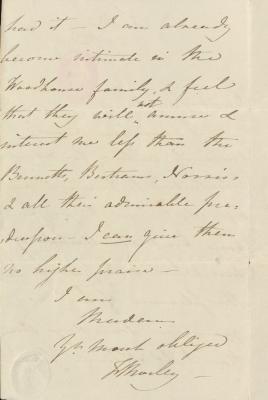 had it — I am already
become intimate in the
Woodhouse family, & feel
that they will not amuse &
interest me less than the
Bennetts, Bertrams, Norriss
& all their admirable pre-
decessors — I can give them
no higher praise —
I am
Madam
Yr. much obliged
F Morley —